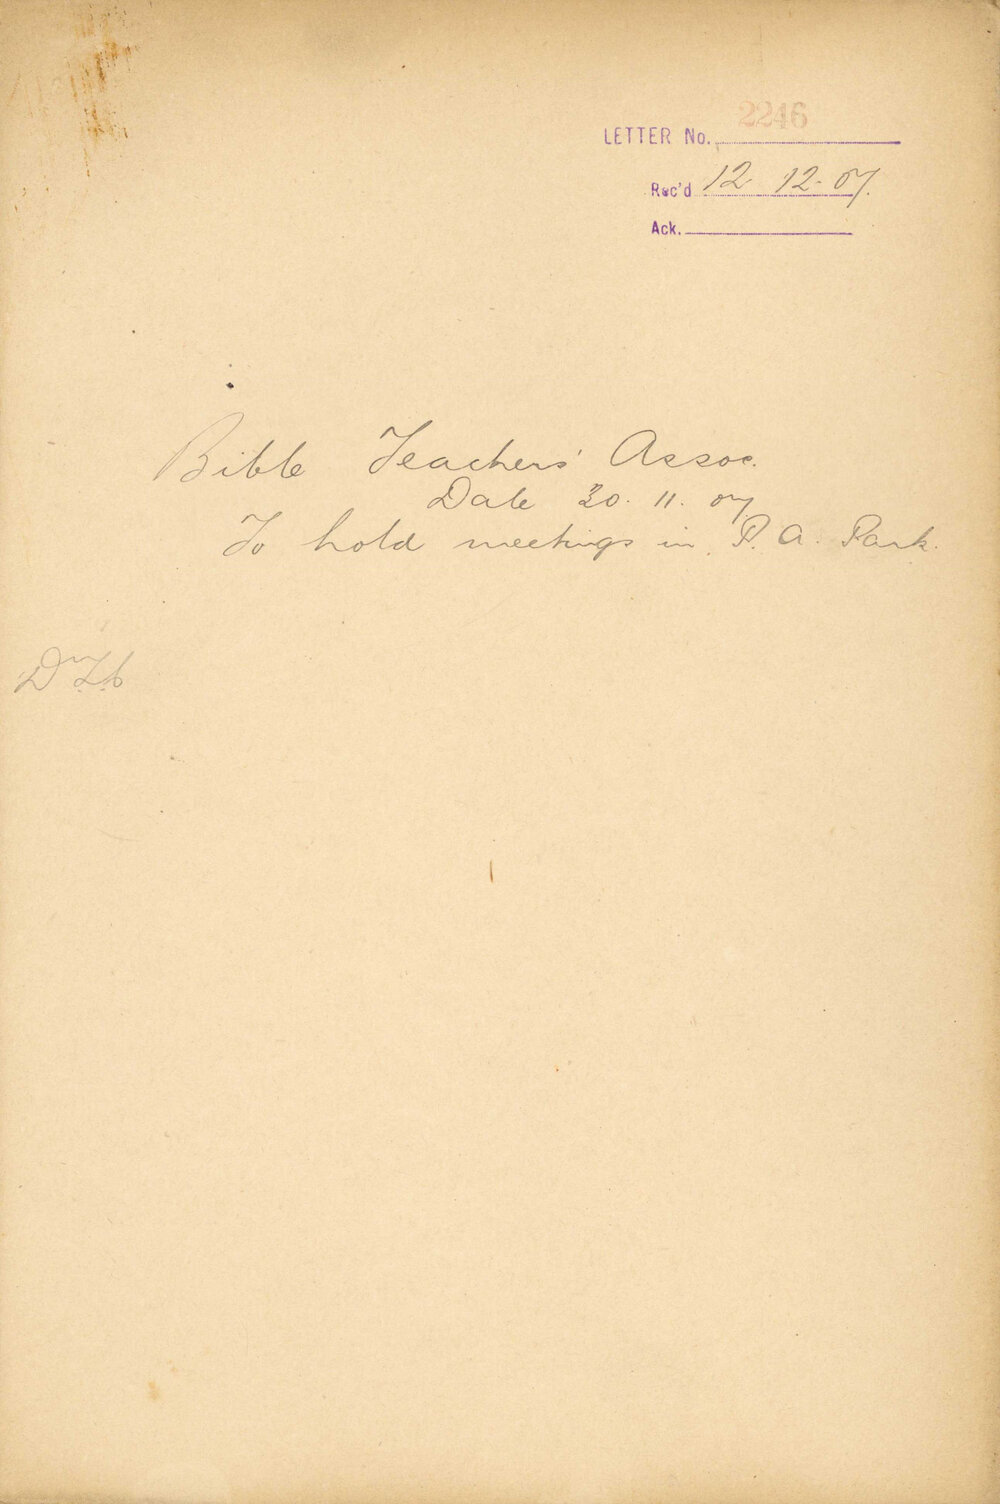 LETTER No. 2246
Rec'd 12 12. 07.
Ack.
Bible Teachers' Assoc.
Date 30. 11. 07
To hold meetings in P. A. Park.